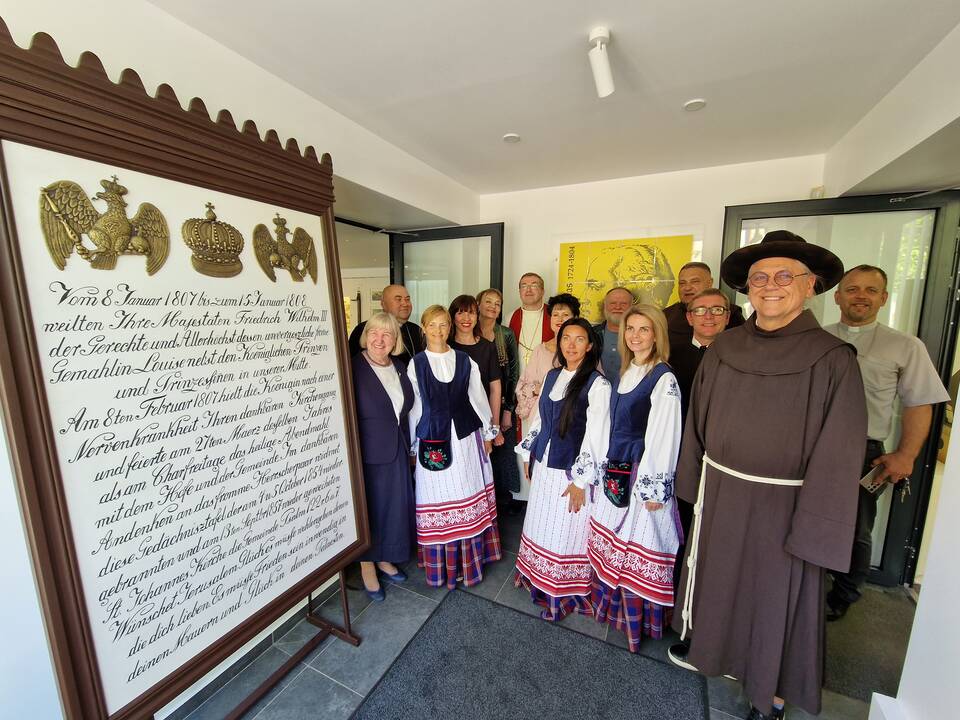 Vom 8 Januar 1807 bis zum 15 Januar 1808
weilten Ihre Majestäten Friedrich Wilhelm III
der Gerechte und Allerhöchst dessen unvergeszliche fromme
Gemahlin Louise nebst den Koeniglichen Prinzen
und Prinzessinen in unserer Mitte.
Am 8ten Februar 1807 hielt die Koenigin nach einer
Nervenkrankheit Ihren dankbaren Kirchengang
und feierte am 27ten Maerz desselben Jahres
als am Charfreitage das heilige Abendmahl
mit dem Hofe und der Gemeinde. Im dankbaren
Andenken an das fromme Herrscherpaar widmet
diese Gedächnisztafel der am 4 u 5 October 1854 nieder
gebrannten und am 13ten Septbr 1857 wieder geweihten
St. Johannes Kirche die Gemeinde Psalm 122, 6 u 7
Wünschet Jerusalem Glück es müsse wohlergehen denen
die dich lieben. Es müsse Friede sein inwendig in
deinen Mauern und Glück in deinen Palaesten.
AS 1724-1804